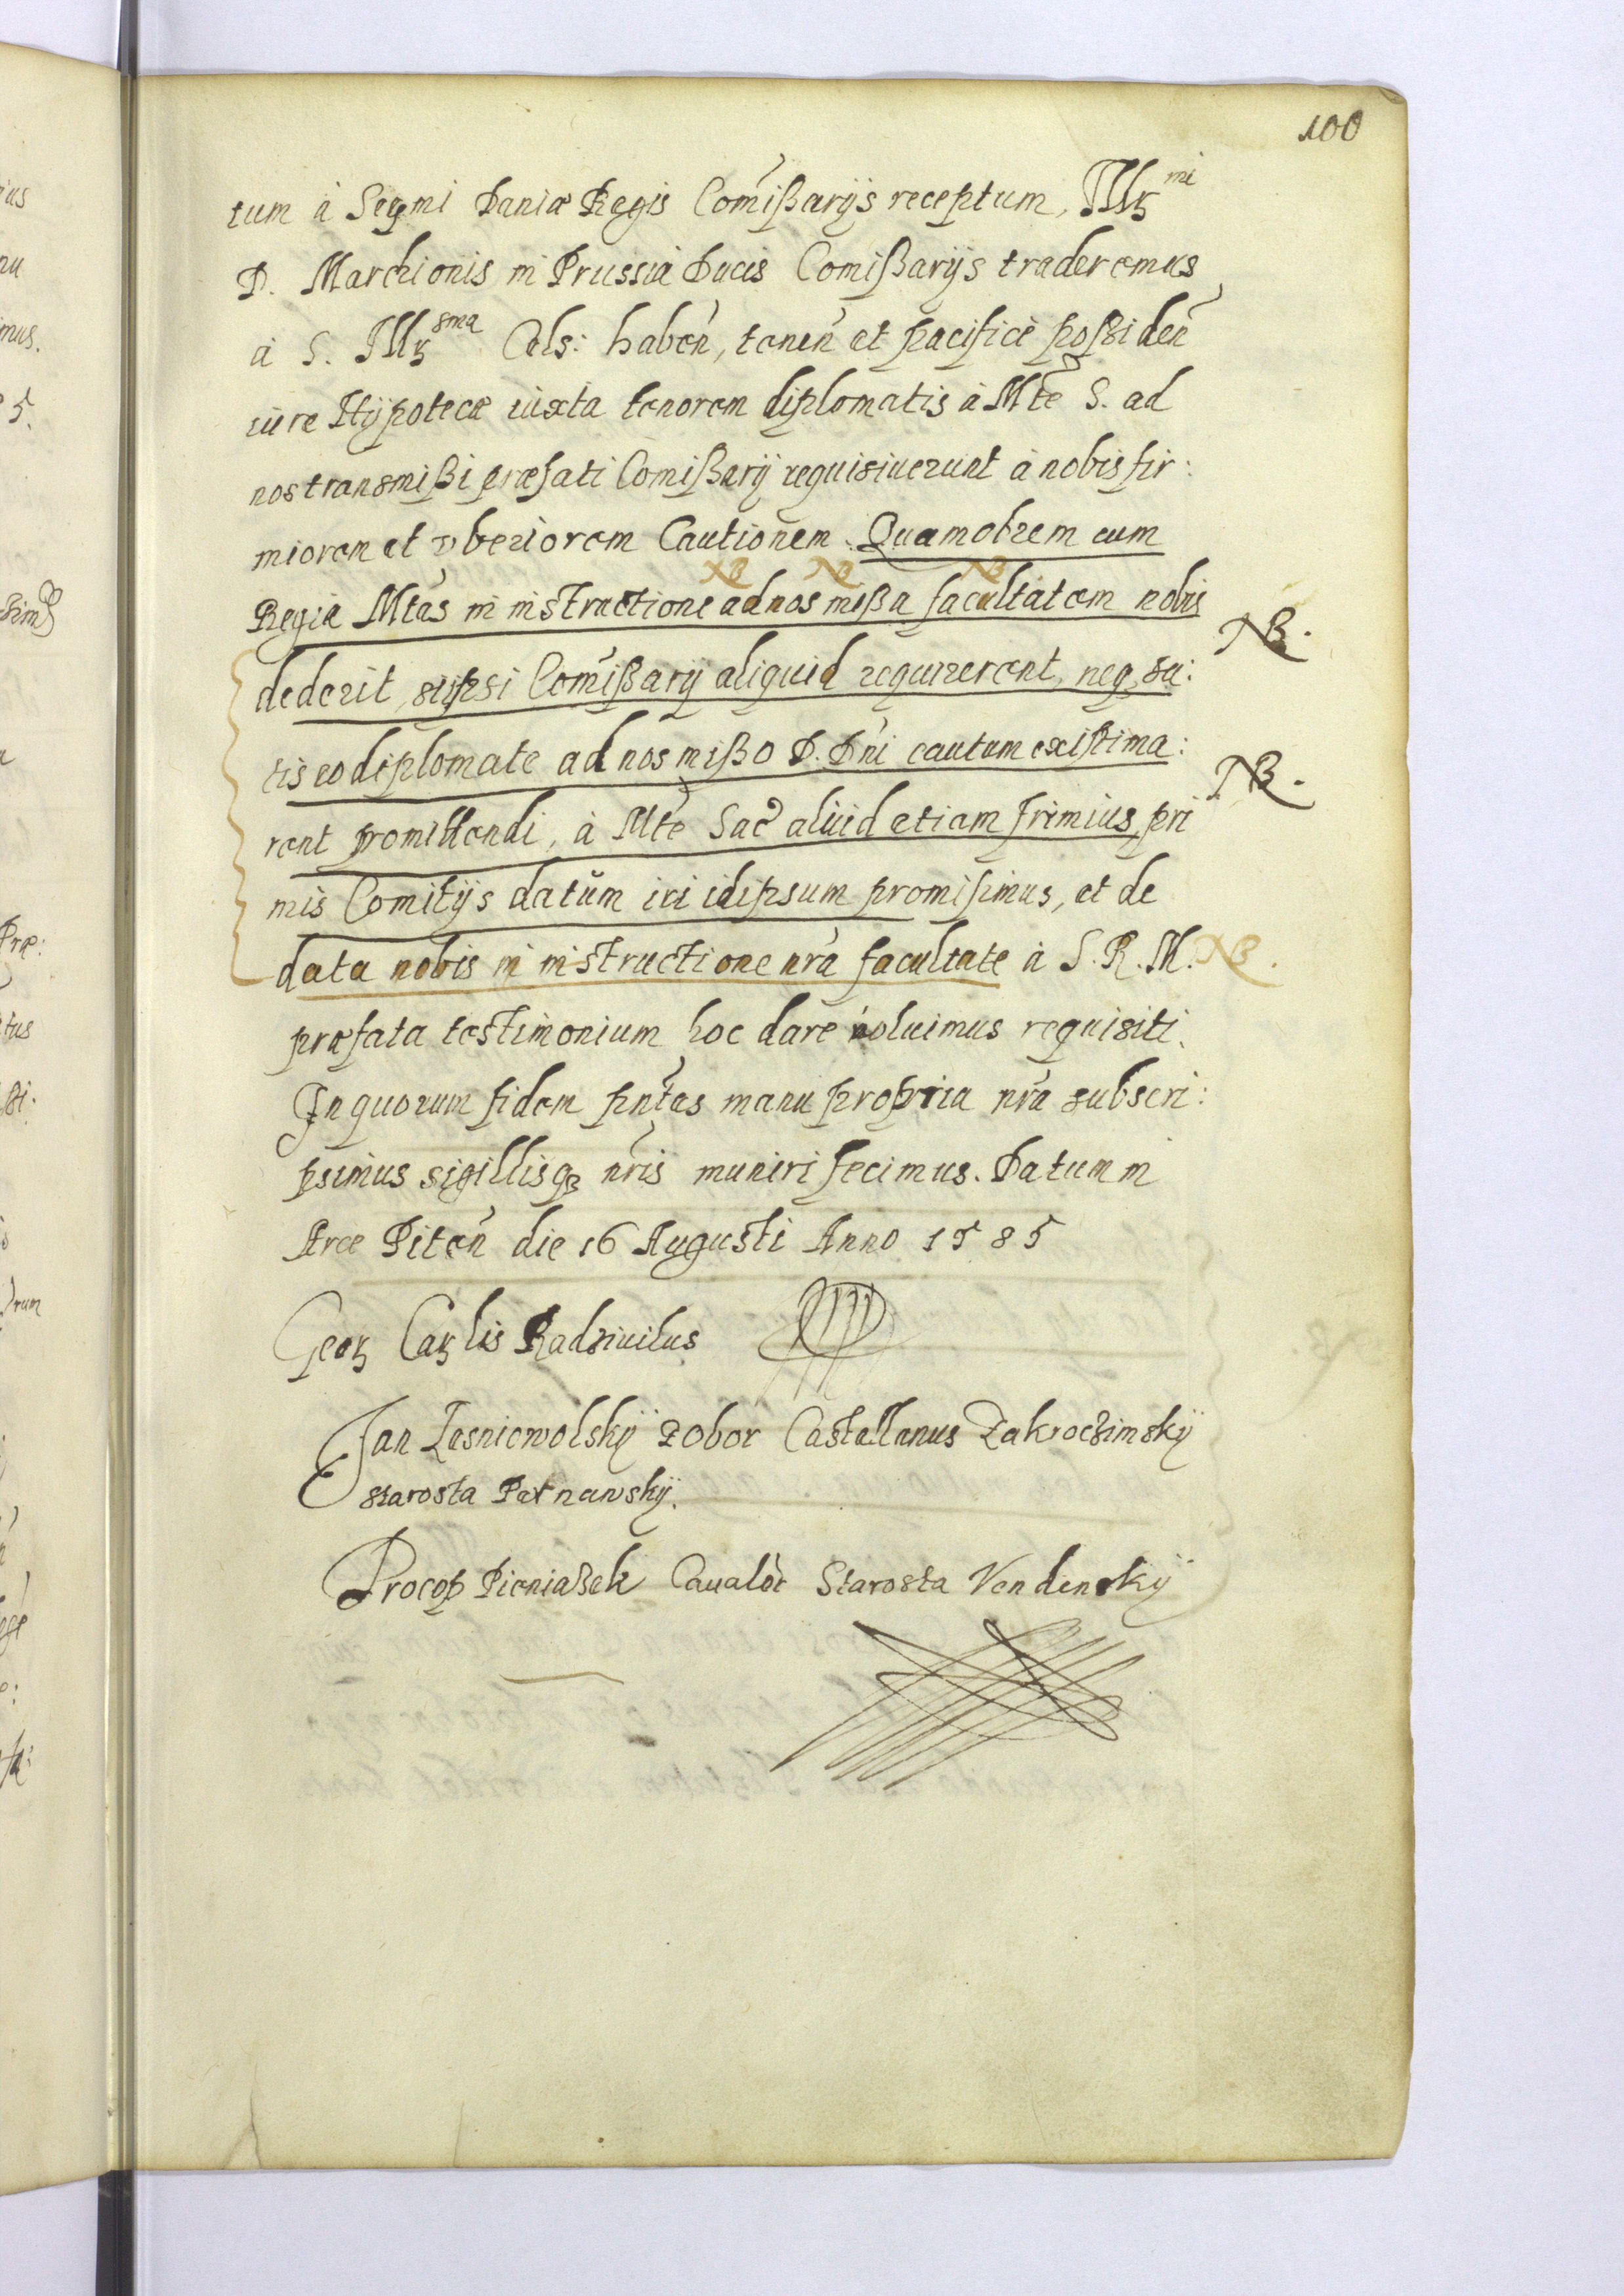 100
tum à Serṃi Daniæ Regis Com̃ißarijs receptum, Illr mi
D. Marchionis in Prussia Ducis Comißarijs traderemus
à S. Illr sma Cels: haben̄, tenen̄ et pacifice poßiden̄
iure Hÿpotecæ iuxta tenorem diplomatis à Mt̃e S. ad
nos transmißi præfati Comißarij requisiuerunt à nobis fir:
miorem et vberiorem Cautionem. Quamobrem cum
NB NB NB
Regia Mt̃as in instructione ad nos mißa facultatem nobis
NB.
dederit, si ipsi Com̃ißarij aliquid requirerent, neq, sa:
tis eo diplomate ad nos mißo D. Dn̄i cautum existima:
NB.
rent promittendi, à Mt̃e Sac̃ aliud etiam firmius pri
mis Comitijs datum iri id ipsum promisimus, et de
data nobis in instructione nr̃a facultate à S. R. M. NB.
præfata testimonium hoc dare voluimus requisiti.
In quorum fidem pn̄tes manu propria nr̃a subscri:
psimus sigillisq3 nr̃is muniri fecimus. Datum in
Arce Piten̄ die 16 Augusti Anno 1585
Geor Car lis Radziuilus
Jan Lesniewolskÿ Zobor Castellanus Zakroczimskÿ
starosta Parnawskÿ.
Procop Pieniaßek Caualėr Starosta Vendenskÿ